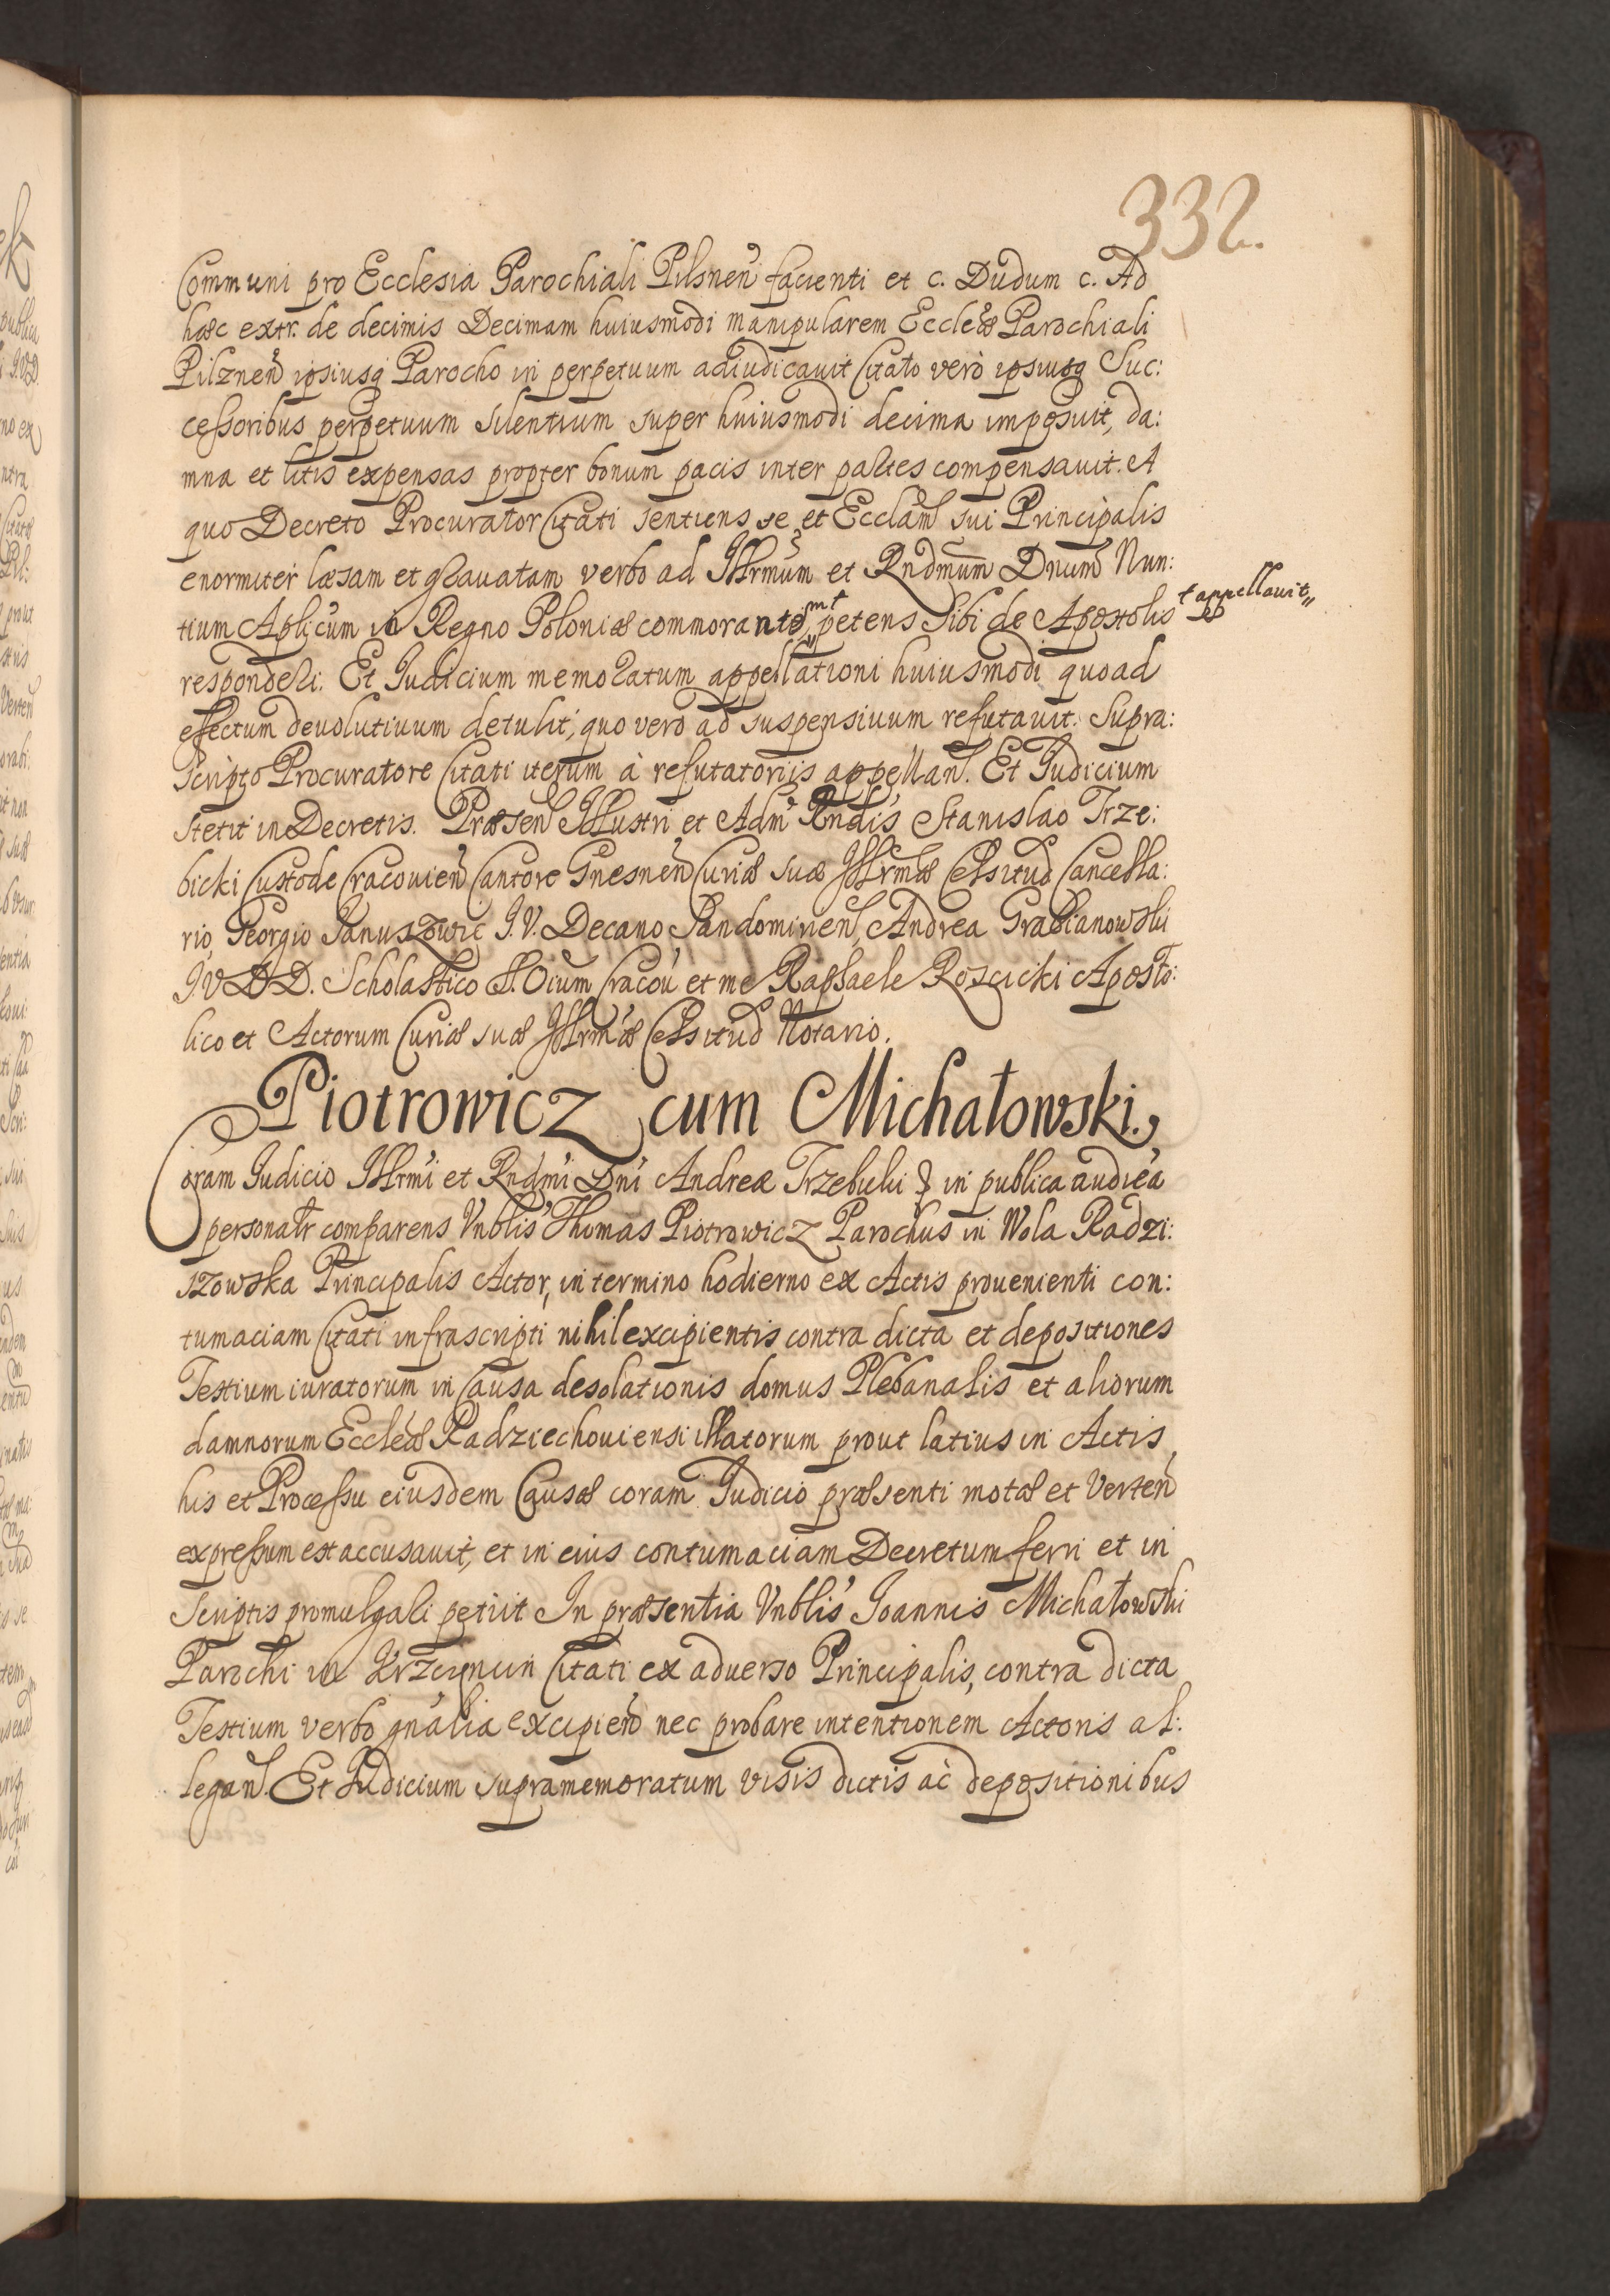 332.
Communi pro Ecclesia Parochiali Pilsnen facienti et c. Dudum c. Ad
hæc extr. de decimis Decimam huiusmodi manipularem Eccleæ Parochiali
Pilznen ipsiusq Parocho in perpetuum adiudicauit Citato verò ipsiusq Suc:
cessoribus perpetuum silentium super huiusmodi decima imposuit, da:
mna et litis expensas propter bonum pacis inter partes compensauit. A
quo Decreto Procurator Citati sentiens se et Ecclam sui Principalis
enormiter læsam et grauatam verbo ad Illrmum et Rndmum Dnum Nun:
tium Aplicum in Regno Poloniæ commorantem † petens sibi de Apostolis
† appellauit
responderi. Et Judicium memoratum appellationi huiusmodi quoad
effectum deuolutiuum detulit, quo vero ad suspensiuum refutauit. Supra:
scripto Procuratore Citati iterum à refutatoriis appellan. Et Judicium
stetit in Decretis. Præsen Illustri et Adm Rndis Stanislao Trze:
bicki Custode Cracouien Cantore Gnesnen Curiæ suæ Illrmæ Celsitud Cancella:
rio, Georgio Januszowic J. V. Decano Sandomirien, Andrea Grabianowski
J V D D. Scholastico S. Oium Cracou et me Raphaele Roscicki Aposto:
lico et Actorum Curiæ suæ Illrmæ Celsitud Notario.
Piotrowicz cum Michałowski.
Coram Judicio Illrmi et Rndmi Dni Andreæ Trzebicki & in publica audiea
personalr comparens Vnblis Thomas Piotrowicz Parochus in Wola Radzi:
szowska Principalis Actor, in termino hodierno ex Actis prouenienti con:
tumaciam Citati infrascripti nihil excipientis contra dicta et depositiones
Testium iuratorum in Causa desolationis domus Plebanalis et aliorum
damnorum Eccleæ Radziechouiensi illatorum prout latius in Actis
his et Processu eiusdem Causæ coram Judicio præsenti motæ et Verten
expressum est accusauit, et in eius contumaciam Decretum ferri et in
scriptis promulgari petiit In præsentia Vnblis Joannis Michałowski
Parochi in Krzęcin Citati ex aduerso Principalis, contra dicta
Testium verbo gnalia excipien nec probare intentionem Actoris al:
legan. Et Judicium supramemoratum visis dictis ac depositionibus